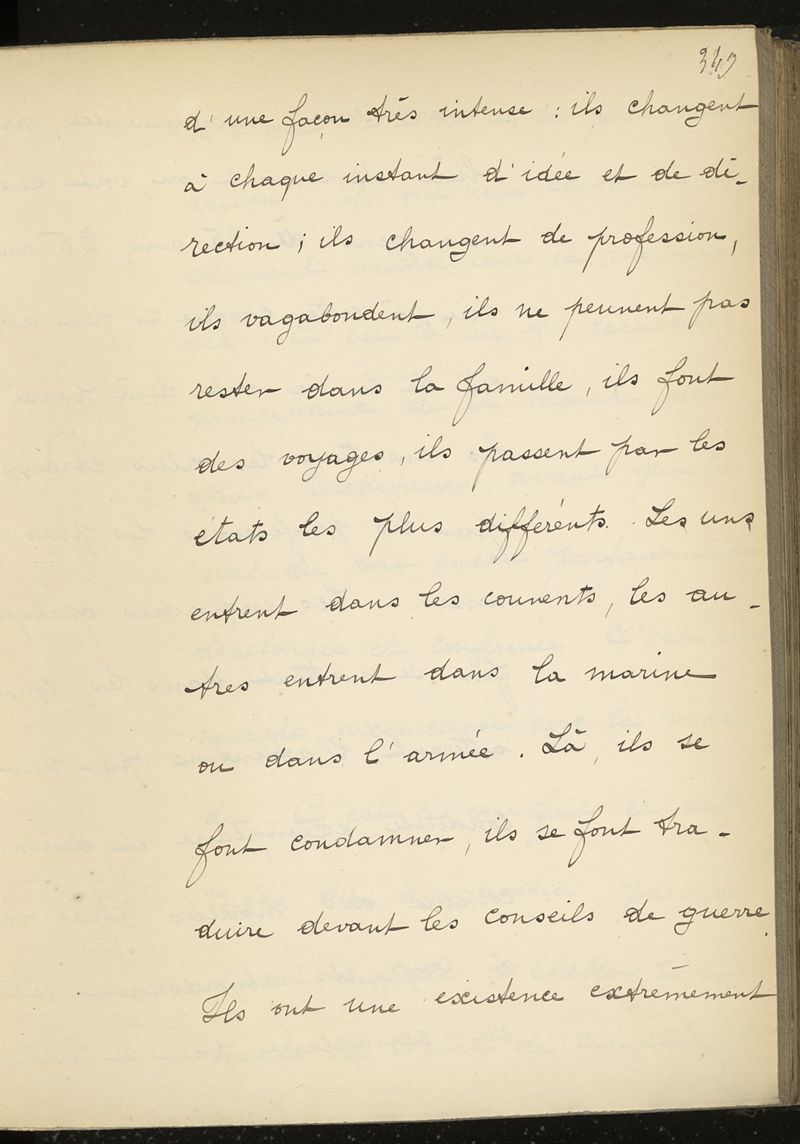 349
d'une façon très intense : ils changent
à chaque instant d'idée et de di-
rection ; ils changent de profession,
ils vagabondent, ils ne peuvent pas
rester dans la famille, ils font
des voyages, ils passent par les
états les plus différents. Les uns
entrent dans les couvents, les au-
tres entrent dans la marine
ou dans l'armée. Là, ils se
font condamner, ils se font tra-
duire devant les conseils de guerre.
Ils ont une existence extrêmement